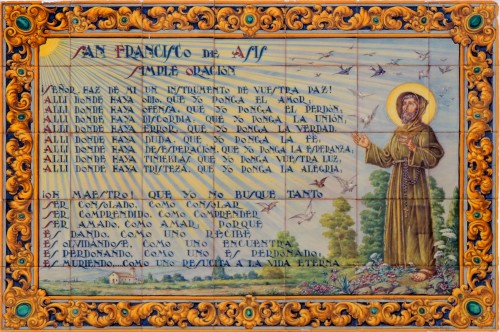 SAN FRANCISCO DE ASIS
SIMPLE ORACION
¡SEÑOR, HAZ DE MI UN INSTRUMENTO DE VUESTRA PAZ!
ALLI DONDE HAYA ODIO, QUE YO PONGA EL AMOR.
ALLI DONDE HAYA OFENSA, QUE YO PONGA EL PERDON;
ALLI DONDE HAYA DISCORDIA, QUE YO PONGA LA UNION;
ALLI DONDE HAYA ERROR, QUE YO PONGA LA VERDAD.
ALLI DONDE HAYA DUDA, QUE YO PONGA LA FE.
ALLI DONDE HAYA DESESPERACION, QUE YO PONGA LA ESPERANZA;
ALLI DONDE HAYA TINIEBLAZ, QUE YO PONGA VUESTRA LUZ,
ALLI DONDE HAYA TRISTEZA, QUE YO PONGA LA ALEGRIA.
¡OH MAESTRO! QUE YO NO BUSQUE TANTO
SER CONSOLADO, COMO CONSOLAR
SER COMPRENDIDO, COMO COMPRENDER
SER AMADO, COMO AMAR, PORQUE
ES DANDO, COMO UNO RECIBE
ES OLVIDANDOSE, COMO UNO ENCUENTRA
ES PERDONANDO, COMO UNO ES PERDONADO.
ES MURIENDO, COMO UNO RESUCITA A LA VIDA ETERNA.